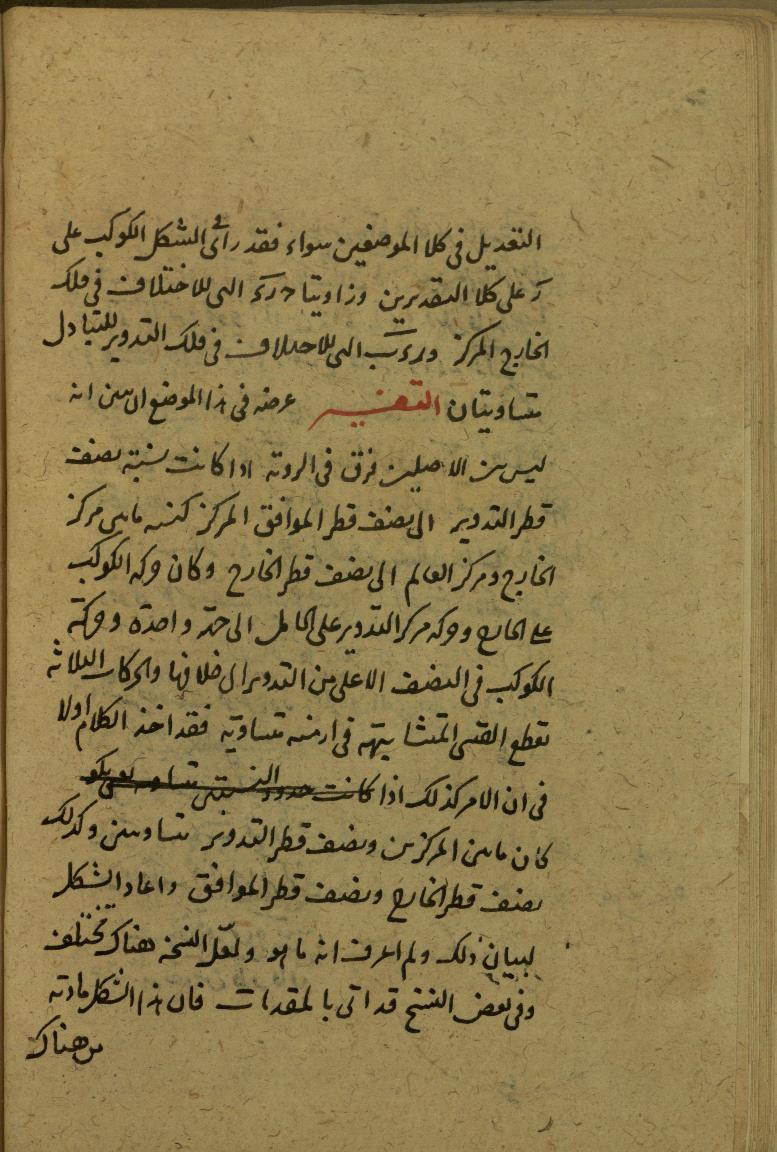 التعديل في كلا الموضعين سواء فقد رأى في الشكل الكوكب على
ر على كلا التقديرين وزاويتا التي للاختلاف في فلك
الخارج المركز و التي للاختلاف في فلك التدوير للتبادل
متساويتان التفسير غرضه في هذا الموضع ان يبين انه
ليس بين الاصلين فرق في الروية اذا كانت نسبة نصف
قطر التدوير الى نصف قطر الموافق المركز كنسبة ما بين مركز
الخارج ومركز العالم الى نصف قطر الخارج وكان حركة الكوكب
على الخارج وحركة مركز التدوير على الحامل الى جهة واحدة وحركة
الكوكب في النصف الاعلى من التدوير الى خلافها والحركات الثلاثة
تقطع القسي المتشابهة في ازمنة متساوية فقد اخذ الكلام اولا
في ان الامر كذلك اذا كانت حدود النسبتين متساوية
كان ما بين المركزين ونصف قطر التدوير متساويين وكذلك
نصف قطر الخارج ونصف قطر الموافق واعاد الشكل
لبيان ذلك ولم اعرف انه ما هو ولعل النسخة هناك تختلف
وفي بعض النسخ قد اتى بالمقدمات فان هذا الشكل مادته
من هناك